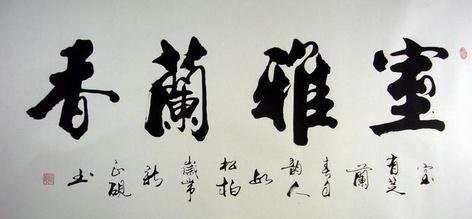 室雅蘭香
室有芝蘭春自韵人如松柏歲常新
书